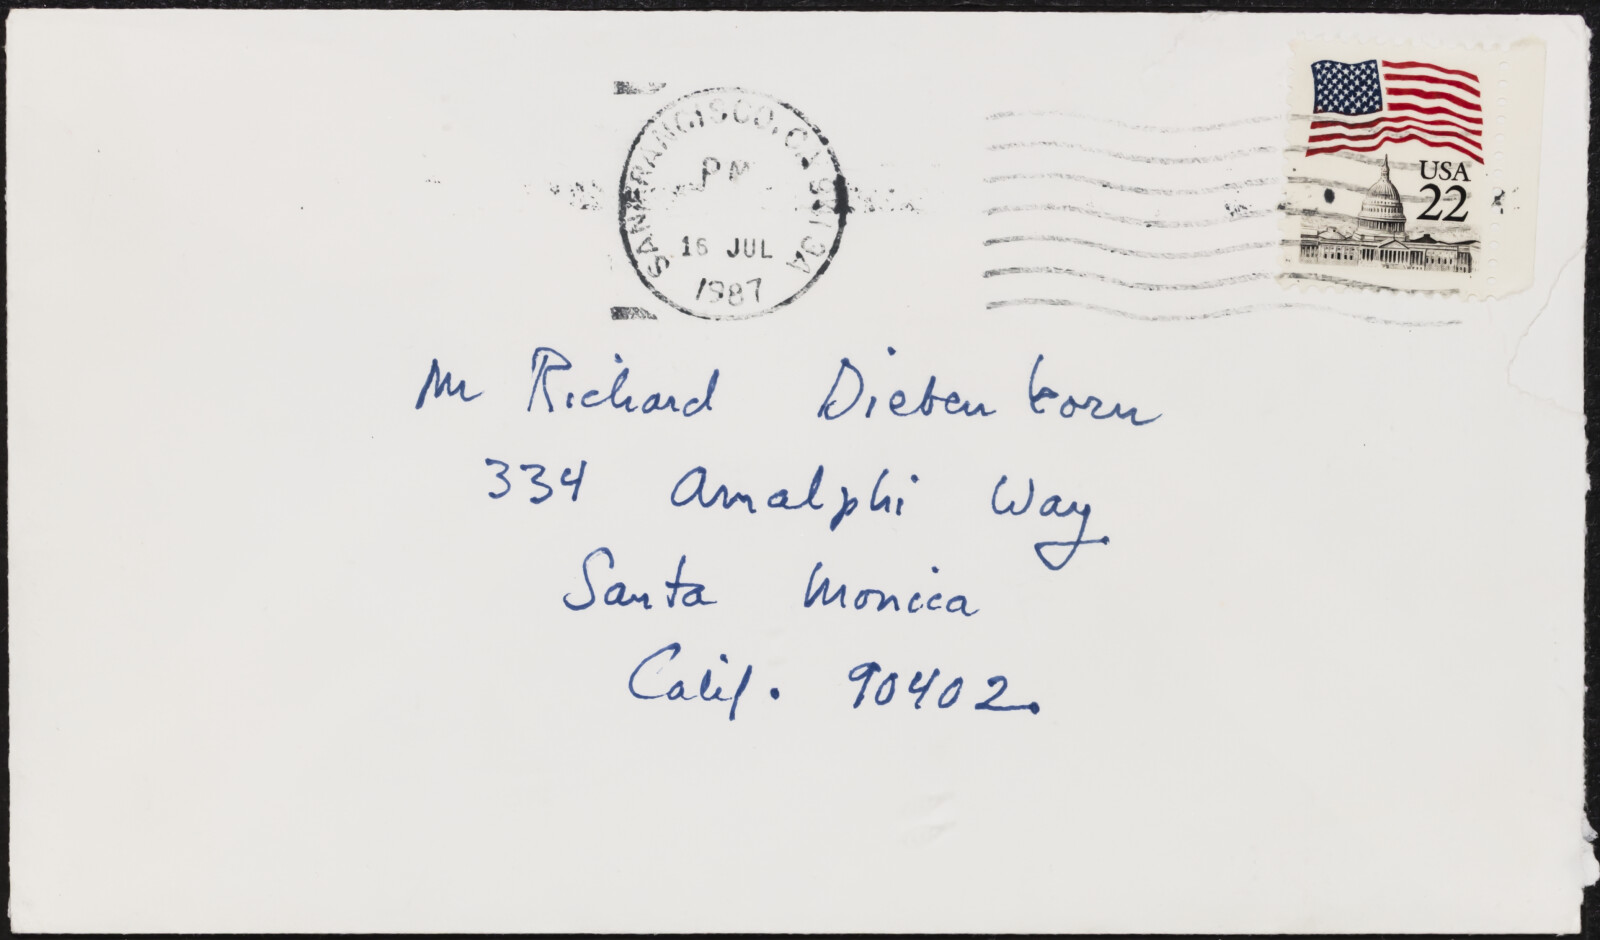 SAN FRANCISCO, CA
PM
16 JUL
1987
USA
22
Mr Richard Diebenkorn
334 Amalphi Way
Santa Monica
Calif. 90402.